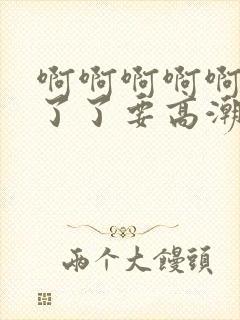 啊啊啊啊啊
了了要高潮
兩个大饅頭